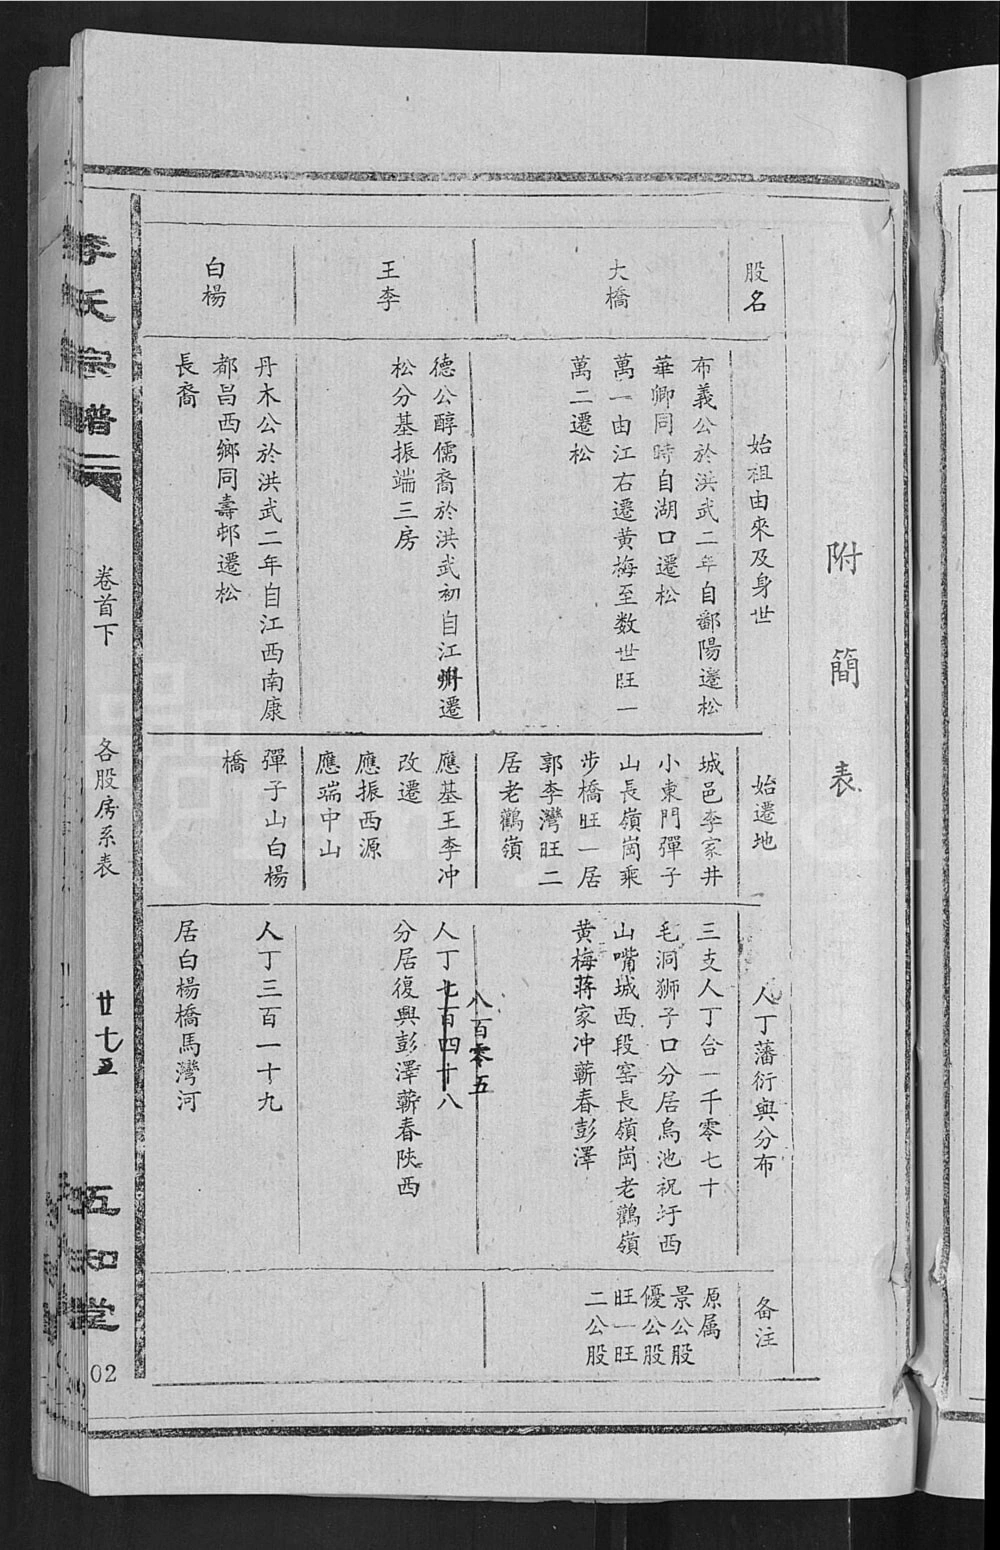 附簡表
股名
始祖由來及身世
始遷地
人丁藩衍與分布
备注
大橋
布義公於洪武二年自鄱陽遷松
華卿同時自湖口遷松
萬一由江右遷黄梅至数世旺一
萬二遷松
城邑李家井
小東門彈子
山長嶺崗乘
步橋旺一居
郭李灣旺二
居老鸛嶺
三支人丁合一千零七十
毛洞狮子口分居烏池祝圩西
山嘴城西段窑長嶺崗老鸛嶺
黄梅蒋家冲蘄春彭澤
原属
景公股
優公股
旺一旺
二公股
王李
德公醇儒裔於洪武初自江州遷
松分基振端三房
應基王李冲
改遷
應振西源
應瑞中山
八百零五
人丁七百四十八
分居復興彭澤蘄春陕西
白楊
丹木公於洪武二年自江西南康
都昌西鄉同壽邨遷松
長裔
彈子山白楊
橋
人丁三百一十九
居白楊橋馬灣河
李氏宗譜
卷首下
各股房系表
廿七五
五知堂
02